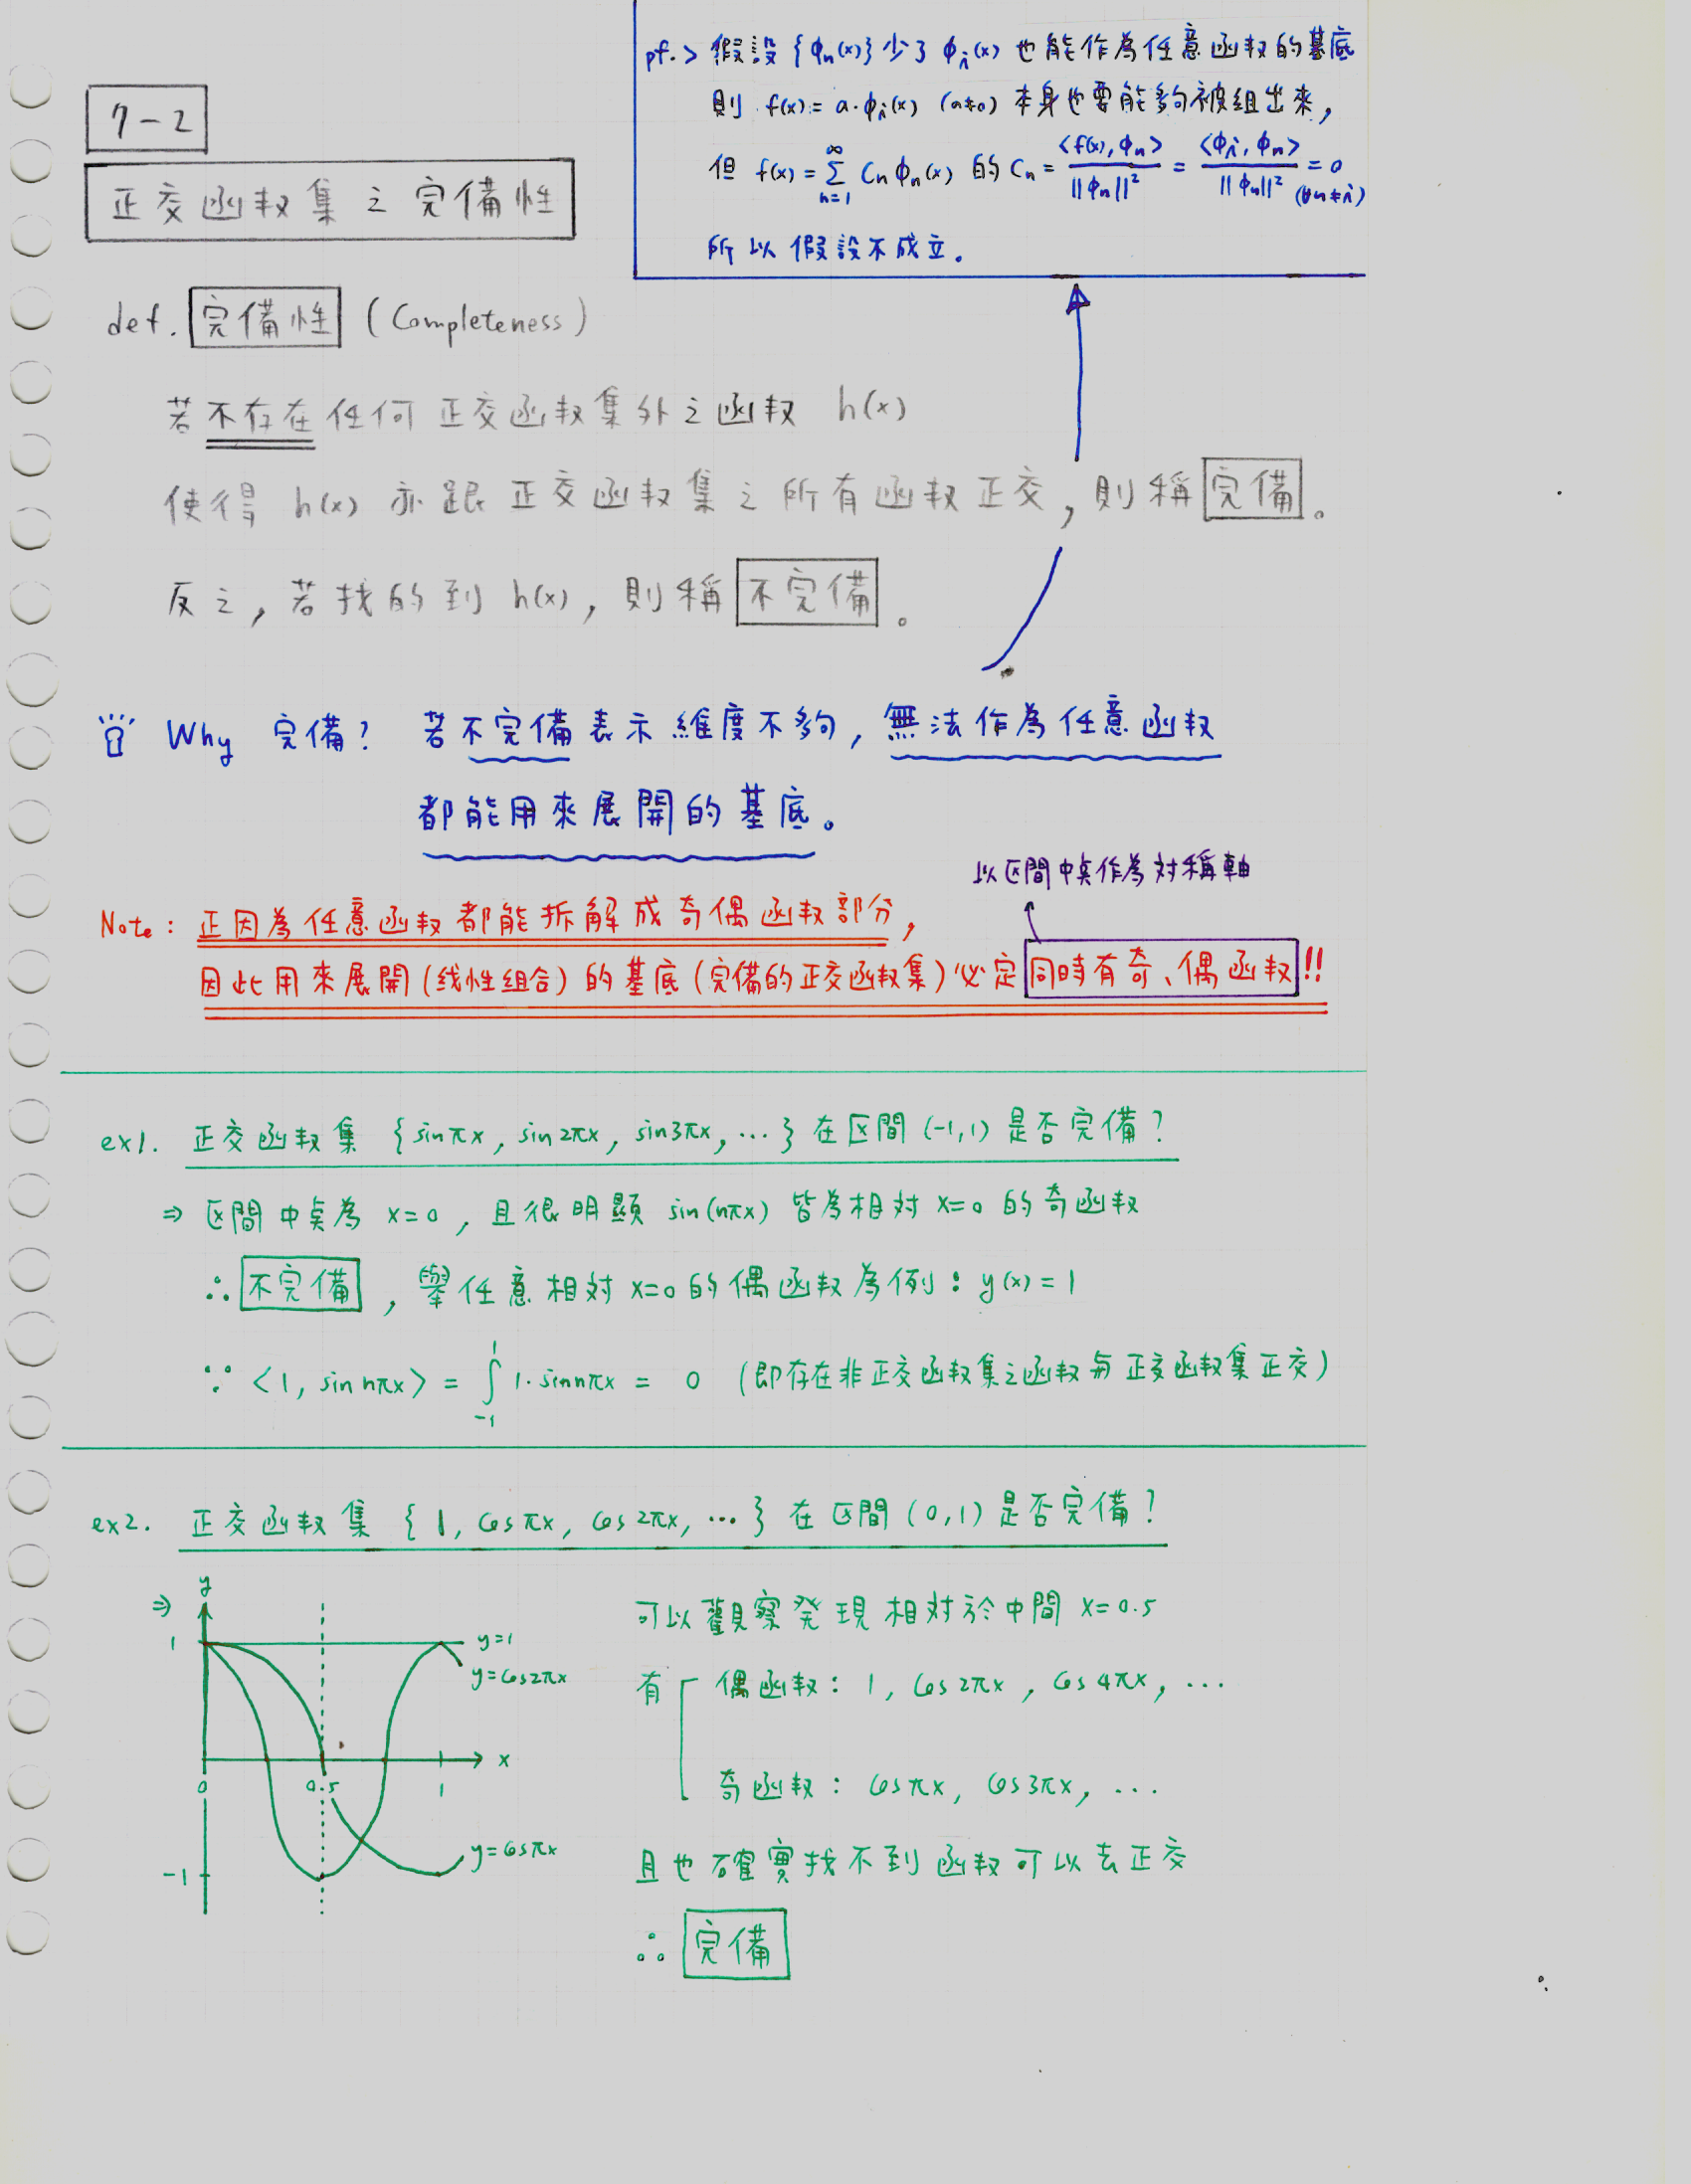 7-2
正交函数集之完備性
pf.> 假設{φn(x)}少了φi(x)也能作為任意函数的基底
則 f(x)=a·φi(x) (a≠0) 本身也要能夠被組出来,
但 f(x)=∑_{n=1}^{∞} Cnφn(x) 的 Cn = <f(x),φn>/||φn||² = <φi,φn>/||φn||² = 0 (∀n≠i)
所以假設不成立。
def. 完備性 (Completeness)
若不存在任何正交函数集外之函数 h(x)
使得 h(x) 亦跟正交函数集之所有函数正交,則稱完備。
反之,若找的到 h(x),則稱不完備。
Why 完備? 若不完備表示維度不夠,無法作為任意函数
都能用來展開的基底。
以区間中奌作為対稱軸
Note: 正因為任意函数都能拆解成奇偶函数部分,
因此用來展開(线性組合)的基底(完備的正交函数集)必定同時有奇、偶函数!!
ex1. 正交函数集 {sinπx, sin2πx, sin3πx, …} 在区間 (-1,1) 是否完備?
⇒ 区間中奌為 x=0, 且很明顯 sin(nπx) 皆為相対 x=0 的奇函数
∴ 不完備, 舉任意相対 x=0 的偶函数為例: y(x)=1
∵ <1, sin nπx> = ∫_{-1}^{1} 1·sinnπx = 0 (即存在非正交函数集之函数与正交函数集正交)
ex2. 正交函数集 {1, cosπx, cos2πx, …} 在区間 (0,1) 是否完備?
⇒
y
1
y=1
y=cos2πx
x
0
0.5
1
-1
y=cosπx
可以觀察発現相対於中間 x=0.5
有 偶函数: 1, cos2πx, cos4πx, …
奇函数: cosπx, cos3πx, …
且也確實找不到函数可以去正交
∴ 完備